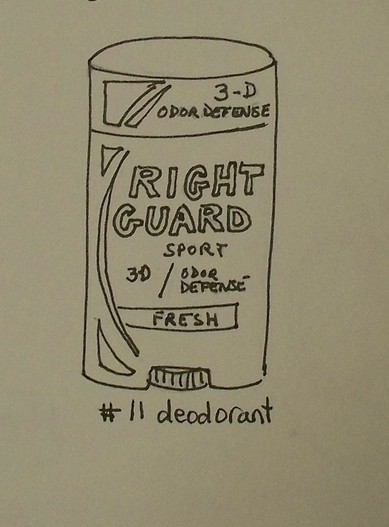 3-D
ODOR DEFENSE
RIGHT
GUARD
SPORT
3-D / ODOR
DEFENSE
FRESH
# 11 deodorant